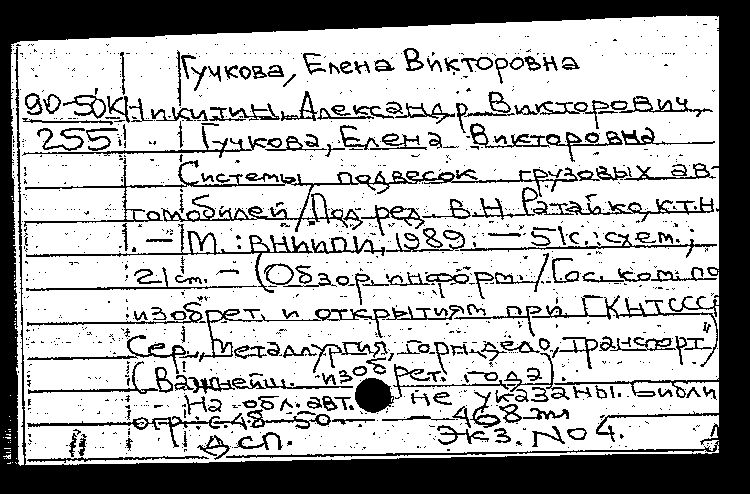 Гучкова, Елена Викторовна
90-50К Никитин, Александр Викторович,
255 Гучкова, Елена Викторовна
Системы подвесок грузовых ав-
томобилей / Под ред. В.Н. Ратайко, к.т.н.
. — М. : ВНИИПИ, 1989. — 51 с. : схем. ;
21 см. — (Обзор. информ. / Гос. ком. по
изобрет. и открытиям при ГКНТ СССР
Сер. „Металлургия, горн. дело, транспорт")
(Важнейш. изобрет. года).
На обл. авт. не указаны. Библи
огр.: с. 48-50. — 468 экз
ДСП. Экз. No 4.